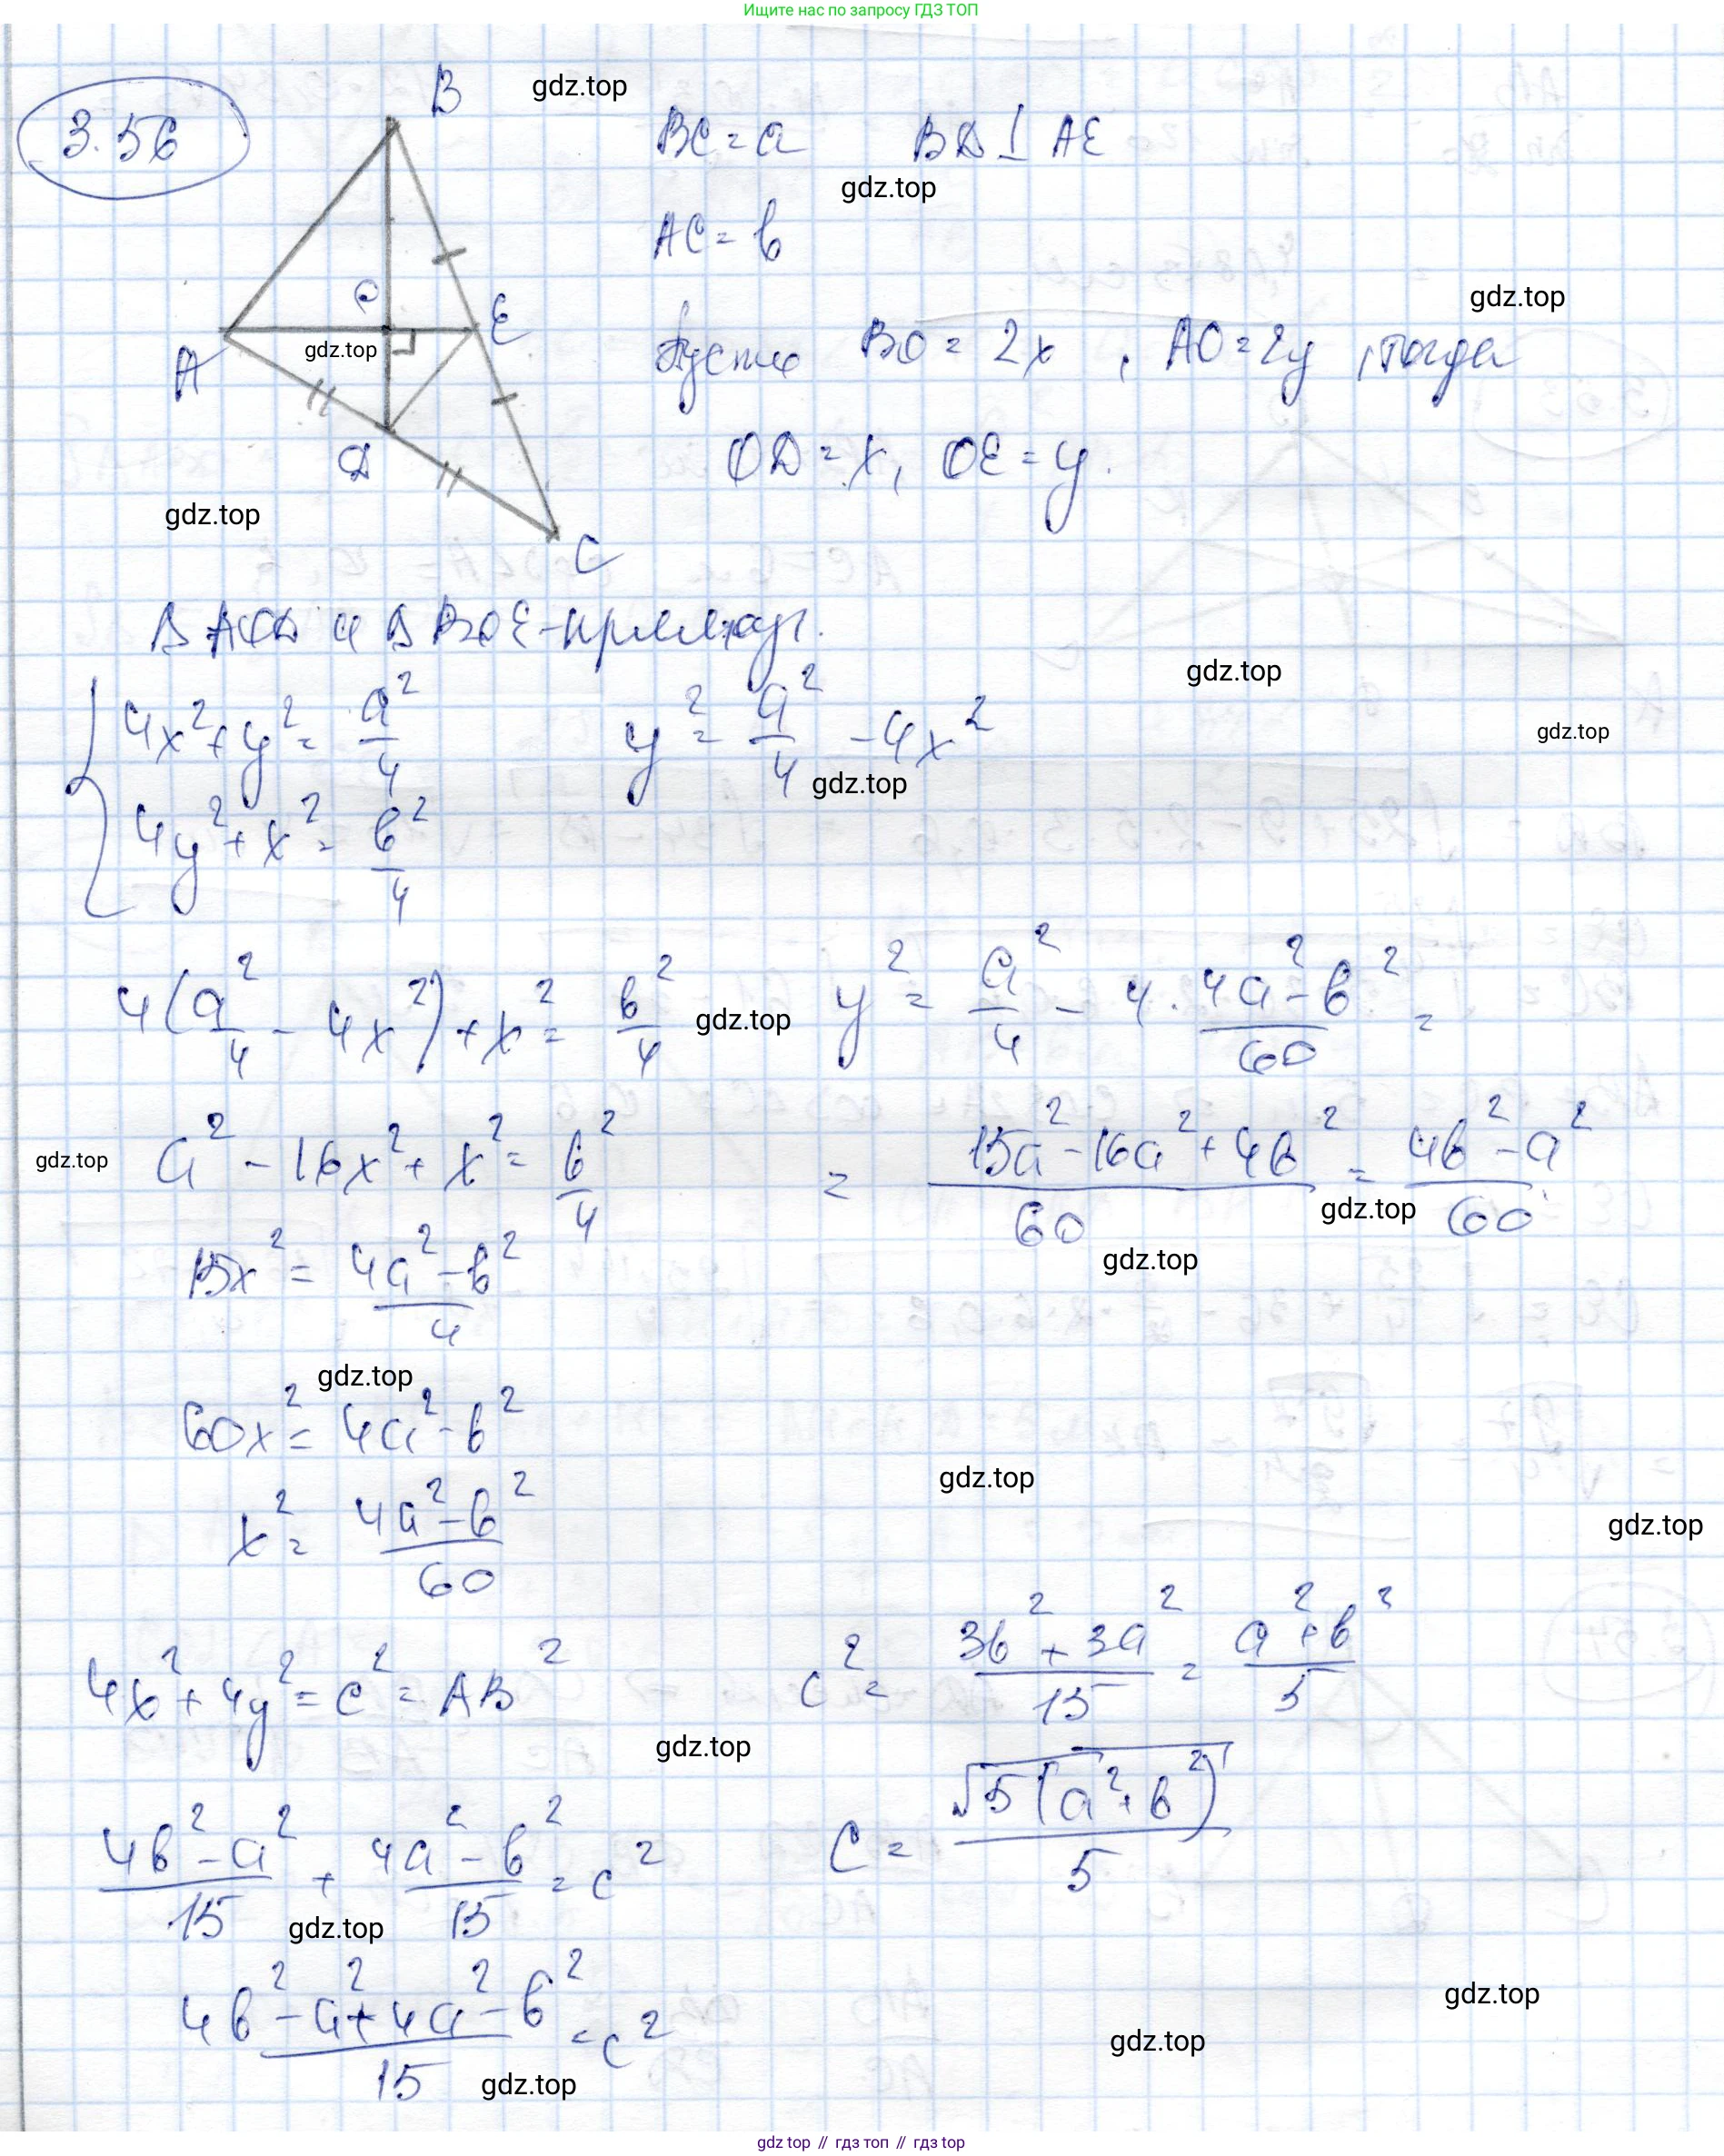 Ищите нас по запросу ГДЗ ТОП
3.56
B
gdz.top
BC = a BD ⊥ AE
gdz.top
AC = b
gdz.top
O
E
A
gdz.top
Пусть BO = 2x, AO = 2y, тогда
D
OD = x, OE = y.
gdz.top
C
Δ AOD и Δ BOE - прямоуг.
gdz.top
4x² + y² = a²/4 y² = a²/4 - 4x²
gdz.top
gdz.top
4y² + x² = b²/4
4(a²/4 - 4x²) + x² = b²/4 gdz.top y² = a²/4 - 4 · (4a² - b²)/60 =
gdz.top a² - 16x² + x² = b²/4 = (15a² - 16a² + 4b²)/60 = (4b² - a²)/60
gdz.top
gdz.top
15x² = (4a² - b²)/4
gdz.top
60x² = 4a² - b²
gdz.top
gdz.top
x² = (4a² - b²)/60
4x² + 4y² = c² = AB² c² = (3b² + 3a²)/15 = (a² + b²)/5
gdz.top
(4b² - a²)/15 + (4a² - b²)/15 = c² c = √5(a² + b²)/5
gdz.top
gdz.top
(4b² - a² + 4a² - b²)/15 = c²
gdz.top
gdz.top
gdz top // гдз топ // gdz.top